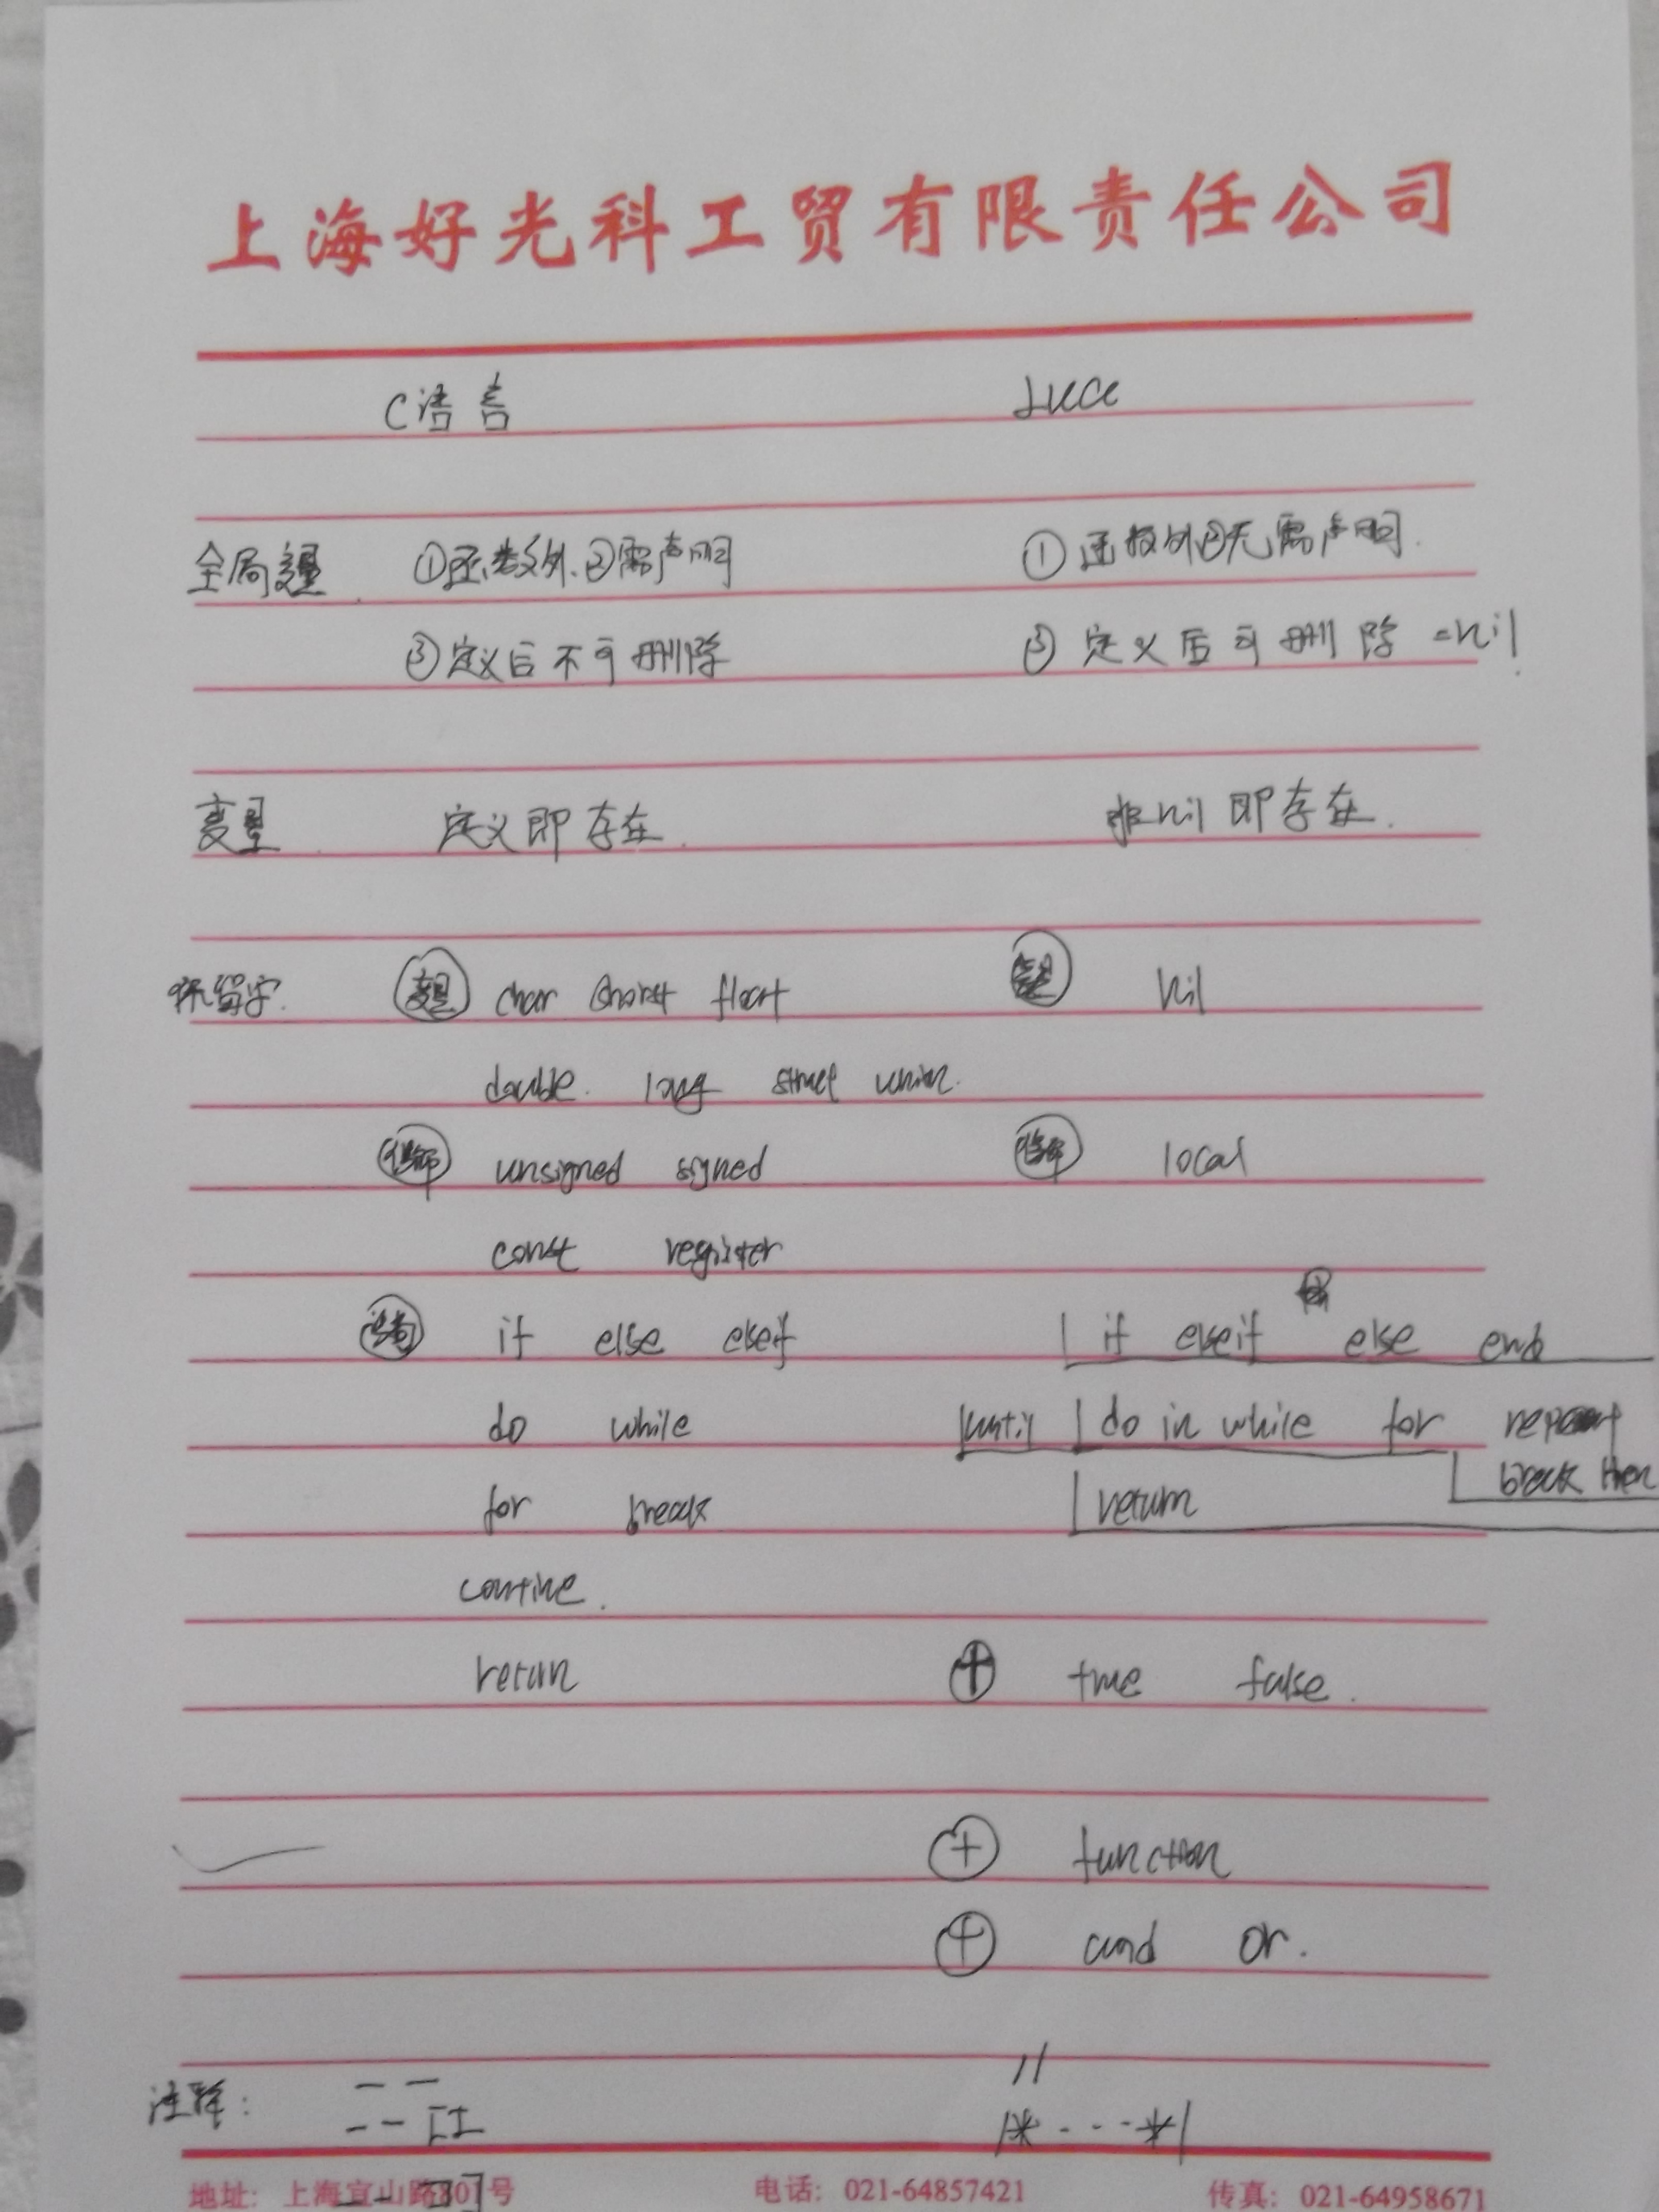 上海好光科工贸有限责任公司
C语言 Lua
全局变量 ①函数外.②需声明 ①函数外②无需声明.
③定义后不可删除 ③定义后可删除 =nil
变量 定义即存在. 非nil即存在.
保留字. 变量 char short float 变量 nil
double. long struct union.
修饰 unsigned signed 修饰 local
const register
语句 if else elseif if elseif else end
do while until do in while for repeat
for break return break then
contine.
return + true false.
+ function
+ and or.
注释: -- //
-- [[ /* ... */
-- ]]
地址: 上海宜山路801号 电话: 021-64857421 传真: 021-64958671